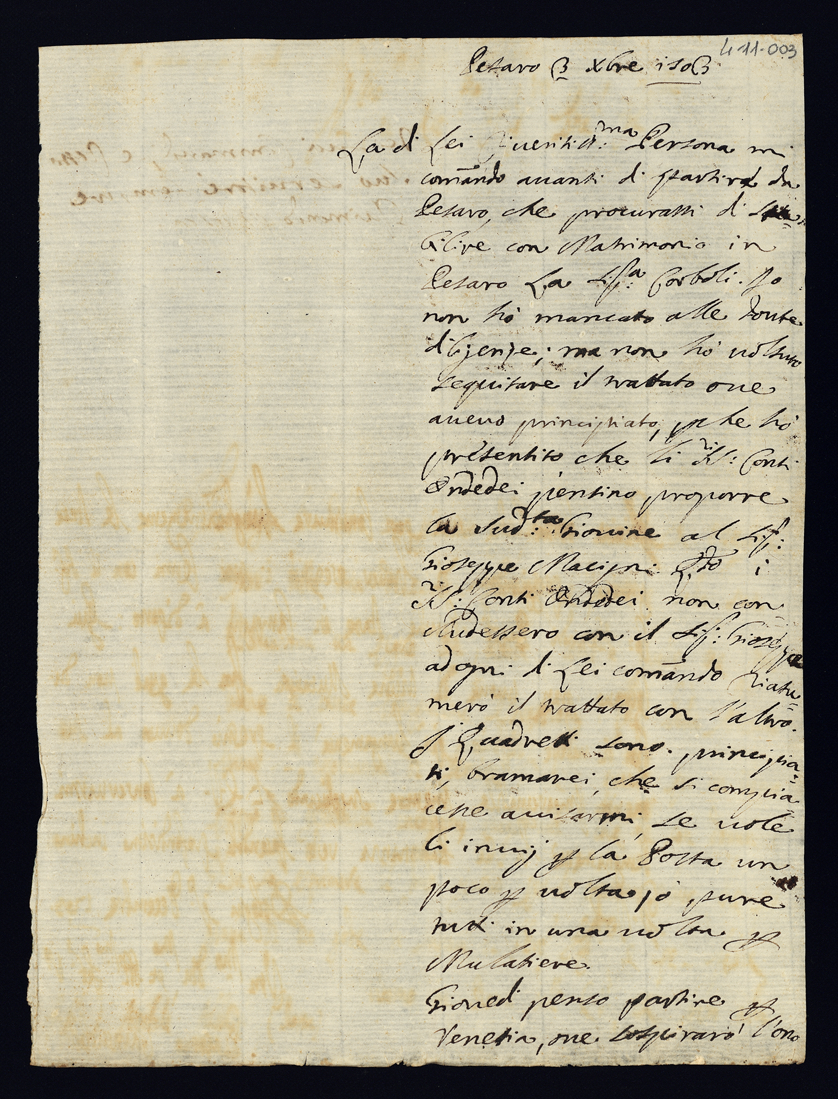 4-11-003
Pesaro 3 Xbre
La di Lei Riveritis:ma Persona mi
comãndo avanti di partire da
Pesaro, che procurassi di sta=
bilire con Matrimonio in
Pesaro La Sig:ra Corboli. Jo
non hò mancato alle dovute
diligenze; ma non hò voluto
sequitare il trattato ove
avevo principiato, pche hò
presentito che li SS:ri Conti
Ordedei pensino proporre
la Sud:ta Giovine al Sig:
Gioseppe Macigni. Qdo i
SS:ri Conti Ordedei non con=
chiudessero con il Sig: Gioseppe
ad ogni di Lei comãndo riatu=
merò il trattato con l'altro.
J Quadretti sono principia=
ti, bramarei, che si compia=
cesse avisarmi, se vole
li invij p la Posta un
poco p volta, ò pure
tutti in una volta p
Mulatiere.
Giovedi penso partire p
Venetia, ove sospirarò l'ono